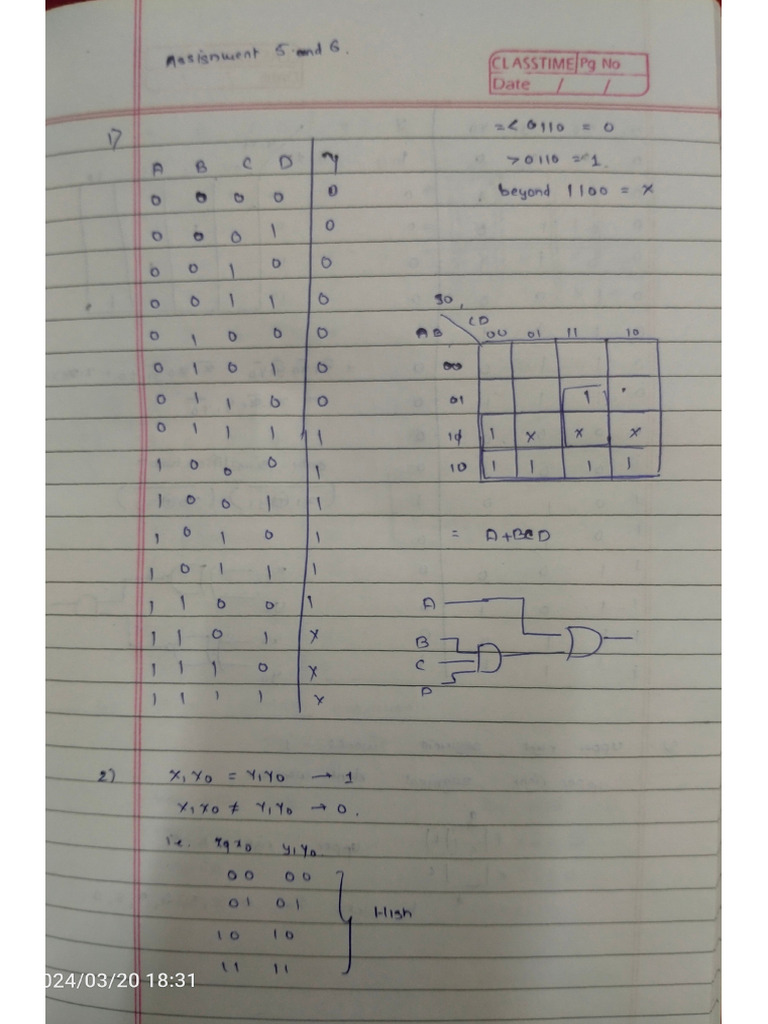 Assignment 5 and 6.
CLASSTIME Pg No
Date / /
1)
=< 0110 = 0
> 0110 = 1.
beyond 1100 = x
A B C D Y
0 0 0 0 0
0 0 0 1 0
0 0 1 0 0
0 0 1 1 0
0 1 0 0 0
0 1 0 1 0
0 1 1 0 0
0 1 1 1 1
1 0 0 0 1
1 0 0 1 1
1 0 1 0 1
1 0 1 1 1
1 1 0 0 1
1 1 0 1 x
1 1 1 0 x
1 1 1 1 x
so,
CD
AB 00 01 11 10
00
01 1
11 1 x x x
10 1 1 1 1
= A+BCD
A
B
C
D
2) x1x0 = y1y0 → 1
x1x0 ≠ y1y0 → 0.
i.e. x1x0 y1y0
00 00
01 01
High
10 10
11 11
024/03/20 18:31